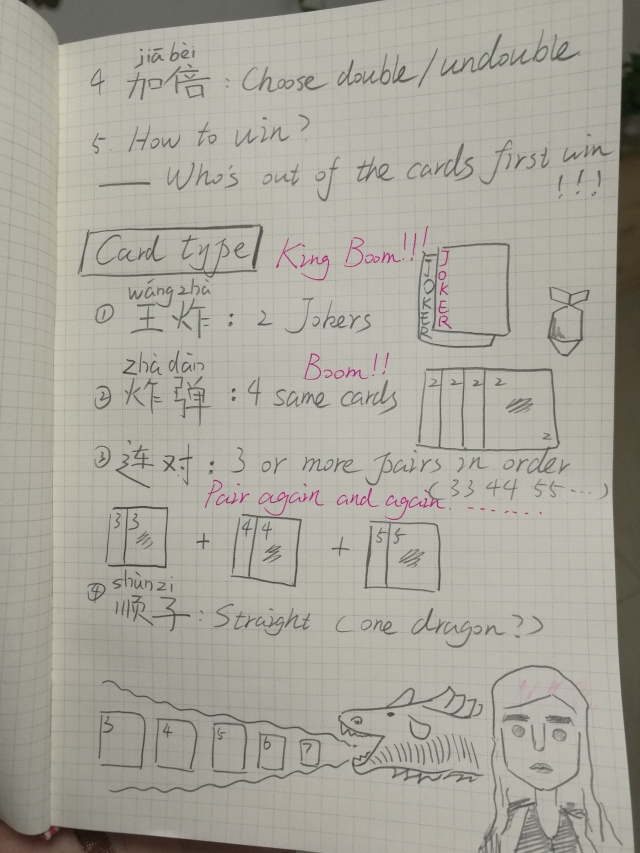 jiā bèi
4 加倍 : Choose double/undouble
5 How to win?
— Who's out of the cards first win
!!!
Card type King Boom!!!
wáng zhà
① 王炸 : 2 Jokers
JOKER JOKER
zhà dàn Boom!!
② 炸弹 : 4 same cards
2 2 2 2
2
③ 连对 : 3 or more pairs in order
(33 44 55 ...)
Pair again and again.........
3 3 + 4 4 + 5 5
shùn zi
④ 顺子 : Straight (one dragon?)
3 4 5 6 7